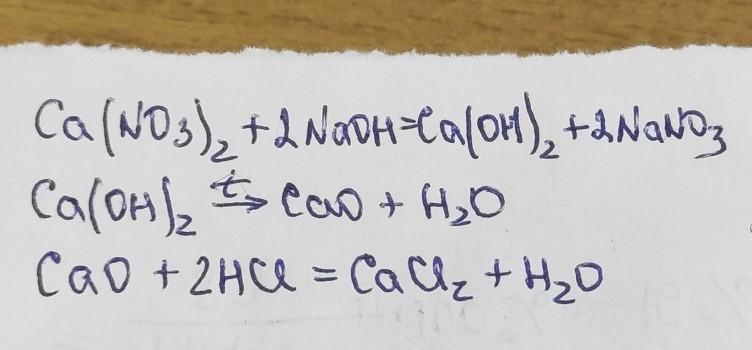 Ca(NO3)2 + 2NaOH = Ca(OH)2 + 2NaNO3
Ca(OH)2 t→ CaO + H2O
CaO + 2HCl = CaCl2 + H2O